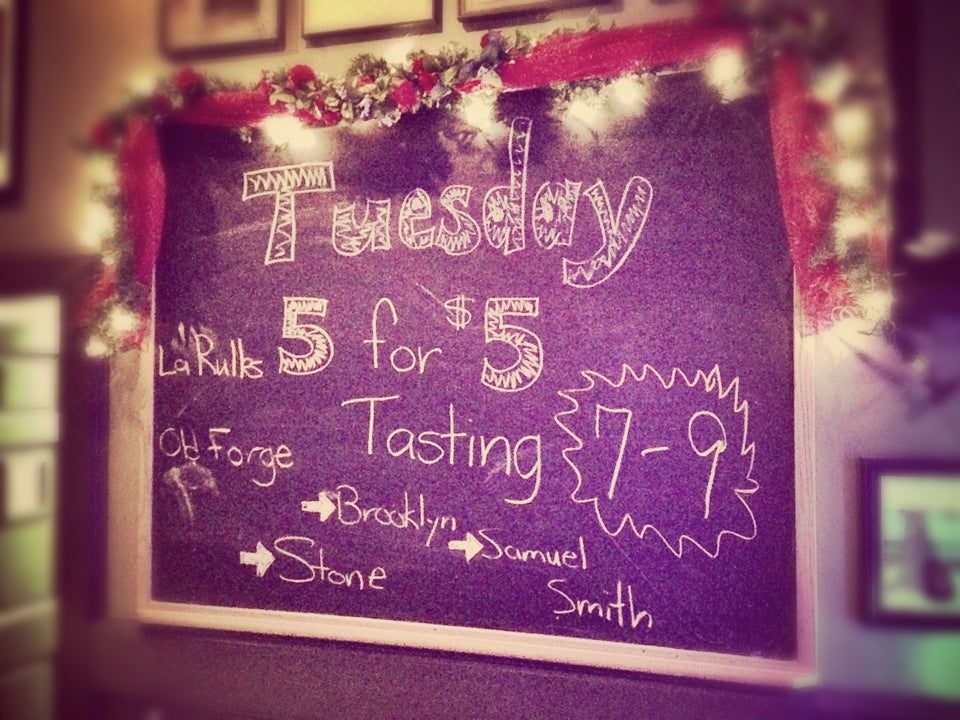 Tuesday
5 for $5
La Rulles
Old Forge
Tasting
7-9
→ Brooklyn
→ Stone
→ Samuel
Smith